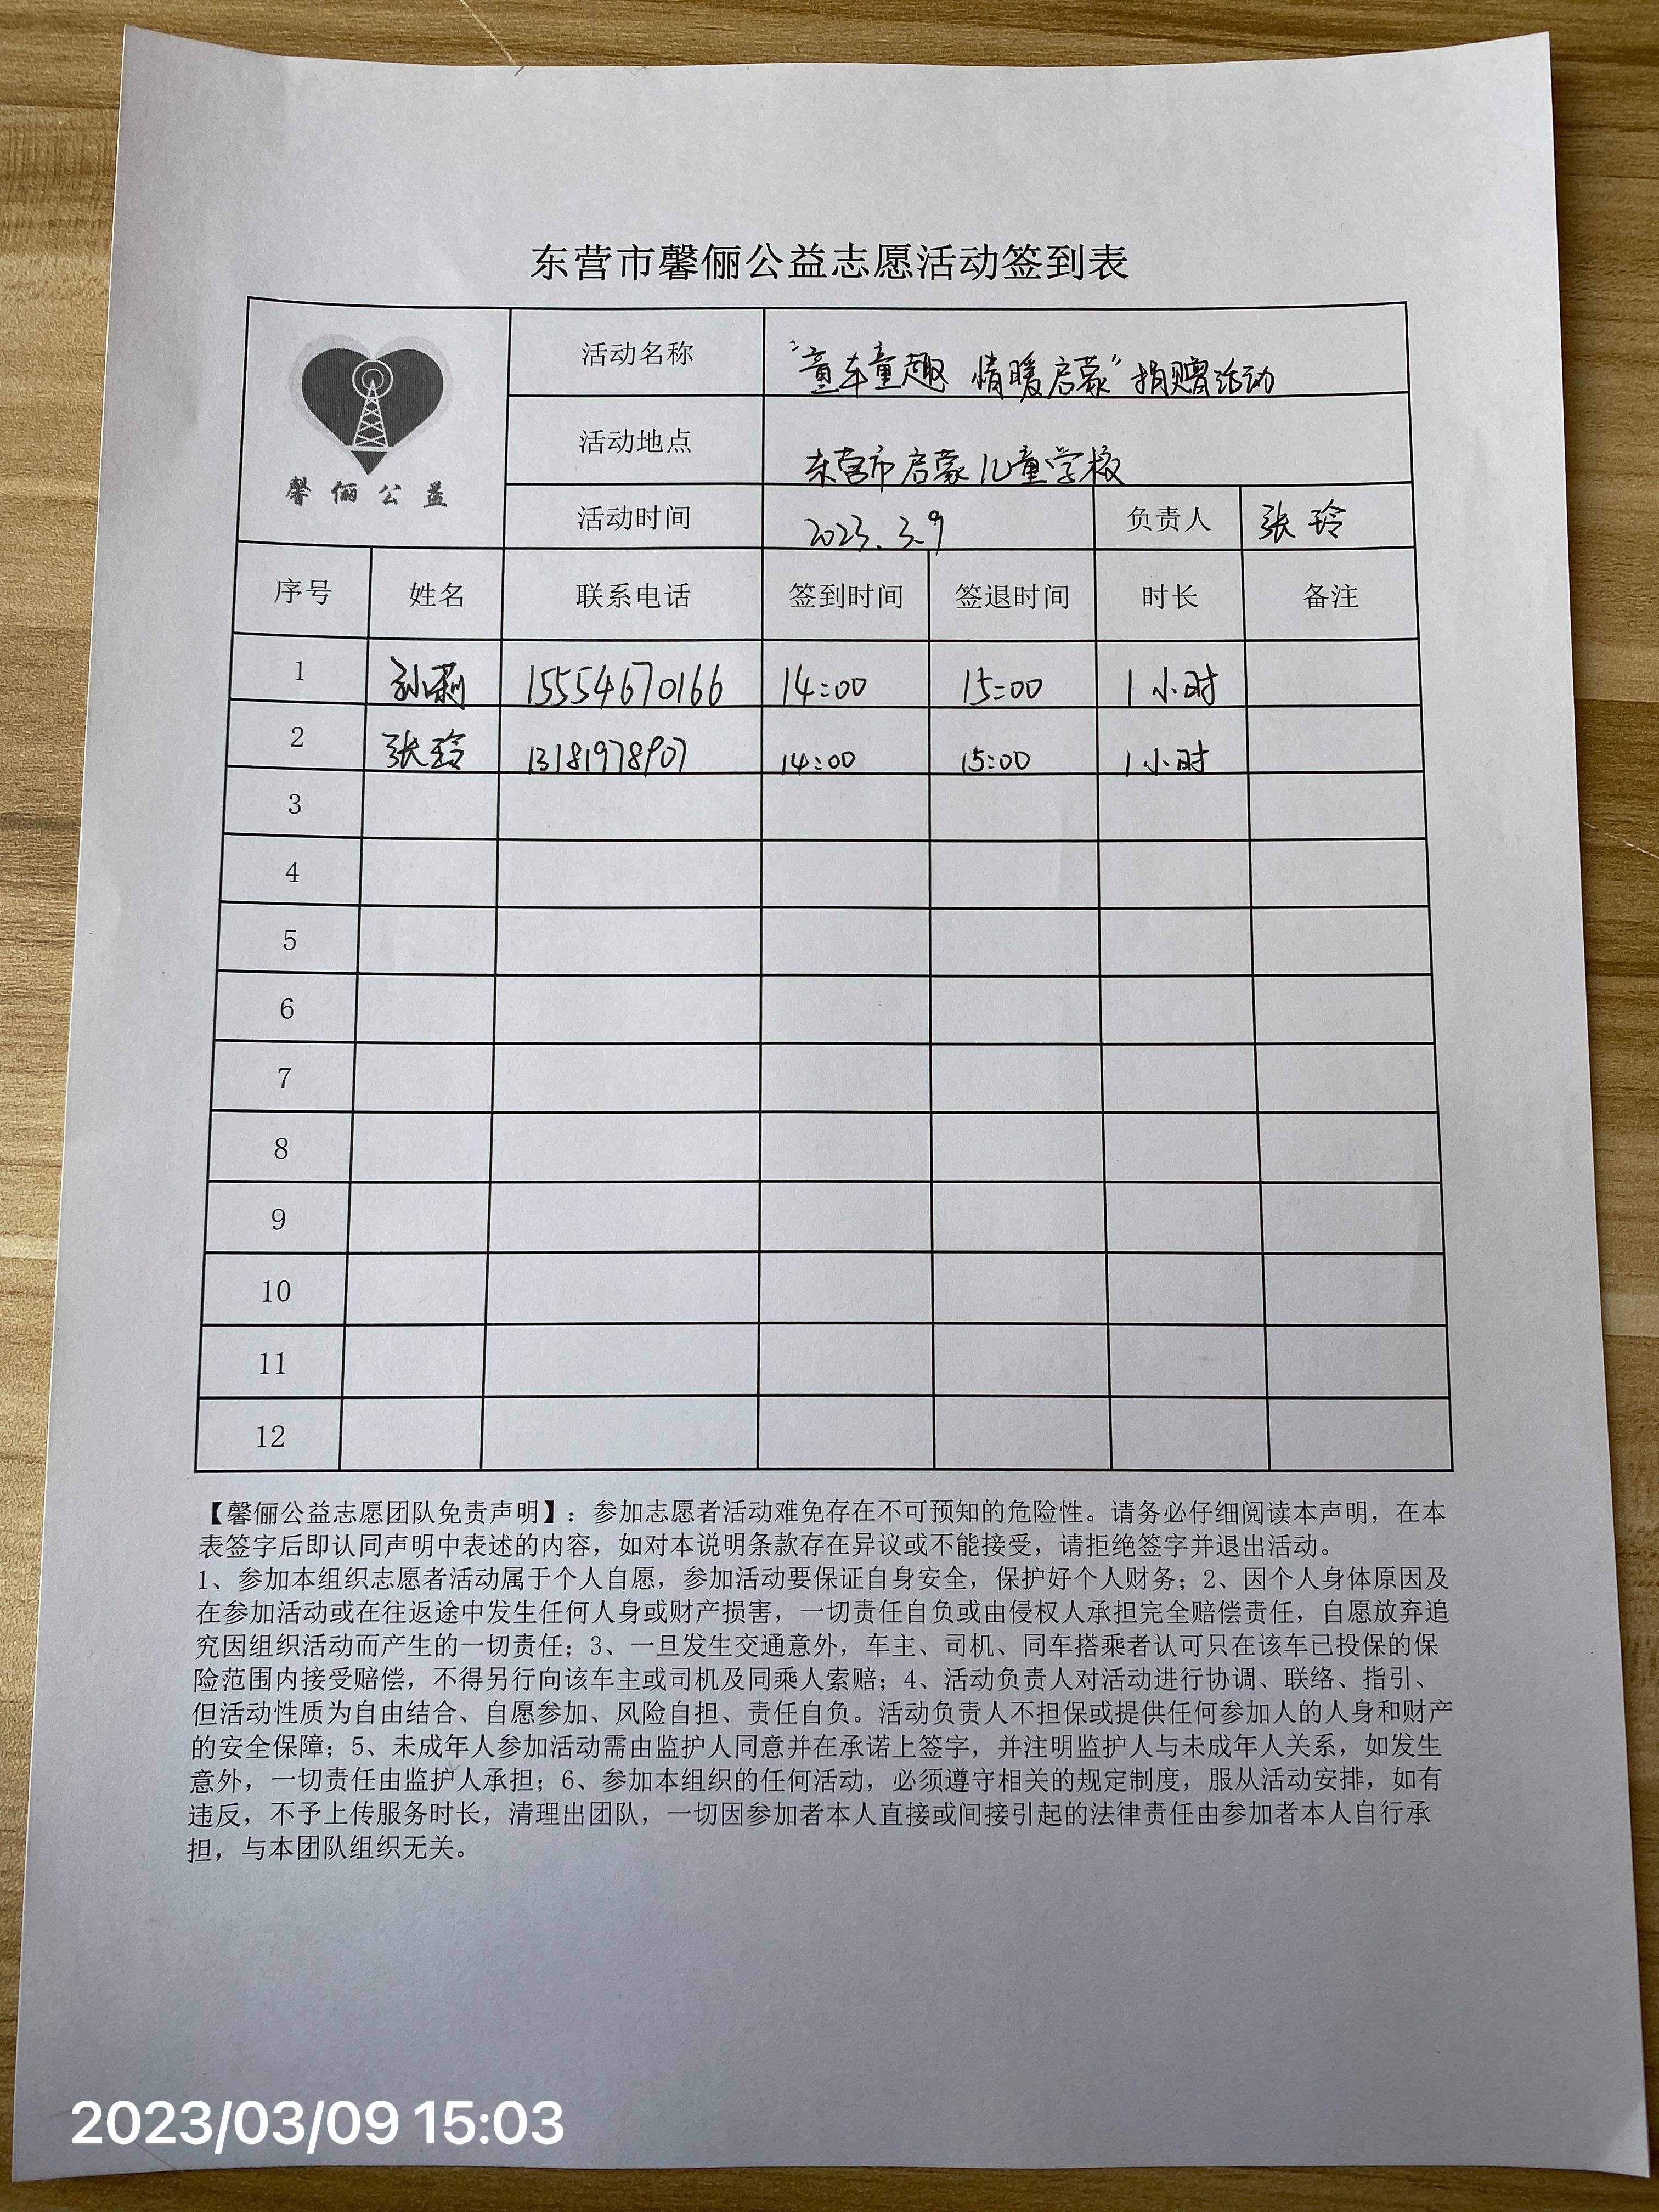 东营市馨俪公益志愿活动签到表
馨俪公益
活动名称 “童车童趣 情暖启蒙”捐赠活动
活动地点 东营市启蒙儿童学校
活动时间 2023.3.9 负责人 张玲
序号 姓名 联系电话 签到时间 签退时间 时长 备注
1 孙莉 15554670166 14:00 15:00 1小时
2 张玲 13181978907 14:00 15:00 1小时
3
4
5
6
7
8
9
10
11
12
【馨俪公益志愿团队免责声明】：参加志愿者活动难免存在不可预知的危险性。请务必仔细阅读本声明，在本
表签字后即认同声明中表述的内容，如对本说明条款存在异议或不能接受，请拒绝签字并退出活动。
1、参加本组织志愿者活动属于个人自愿，参加活动要保证自身安全，保护好个人财务；2、因个人身体原因及
在参加活动或在往返途中发生任何人身或财产损害，一切责任自负或由侵权人承担完全赔偿责任，自愿放弃追
究因组织活动而产生的一切责任；3、一旦发生交通意外，车主、司机、同车搭乘者认可只在该车已投保的保
险范围内接受赔偿，不得另行向该车主或司机及同乘人索赔；4、活动负责人对活动进行协调、联络、指引、
但活动性质为自由结合、自愿参加、风险自担、责任自负。活动负责人不担保或提供任何参加人的人身和财产
的安全保障；5、未成年人参加活动需由监护人同意并在承诺上签字，并注明监护人与未成年人关系，如发生
意外，一切责任由监护人承担；6、参加本组织的任何活动，必须遵守相关的规定制度，服从活动安排，如有
违反，不予上传服务时长，清理出团队，一切因参加者本人直接或间接引起的法律责任由参加者本人自行承
担，与本团队组织无关。
2023/03/09 15:03